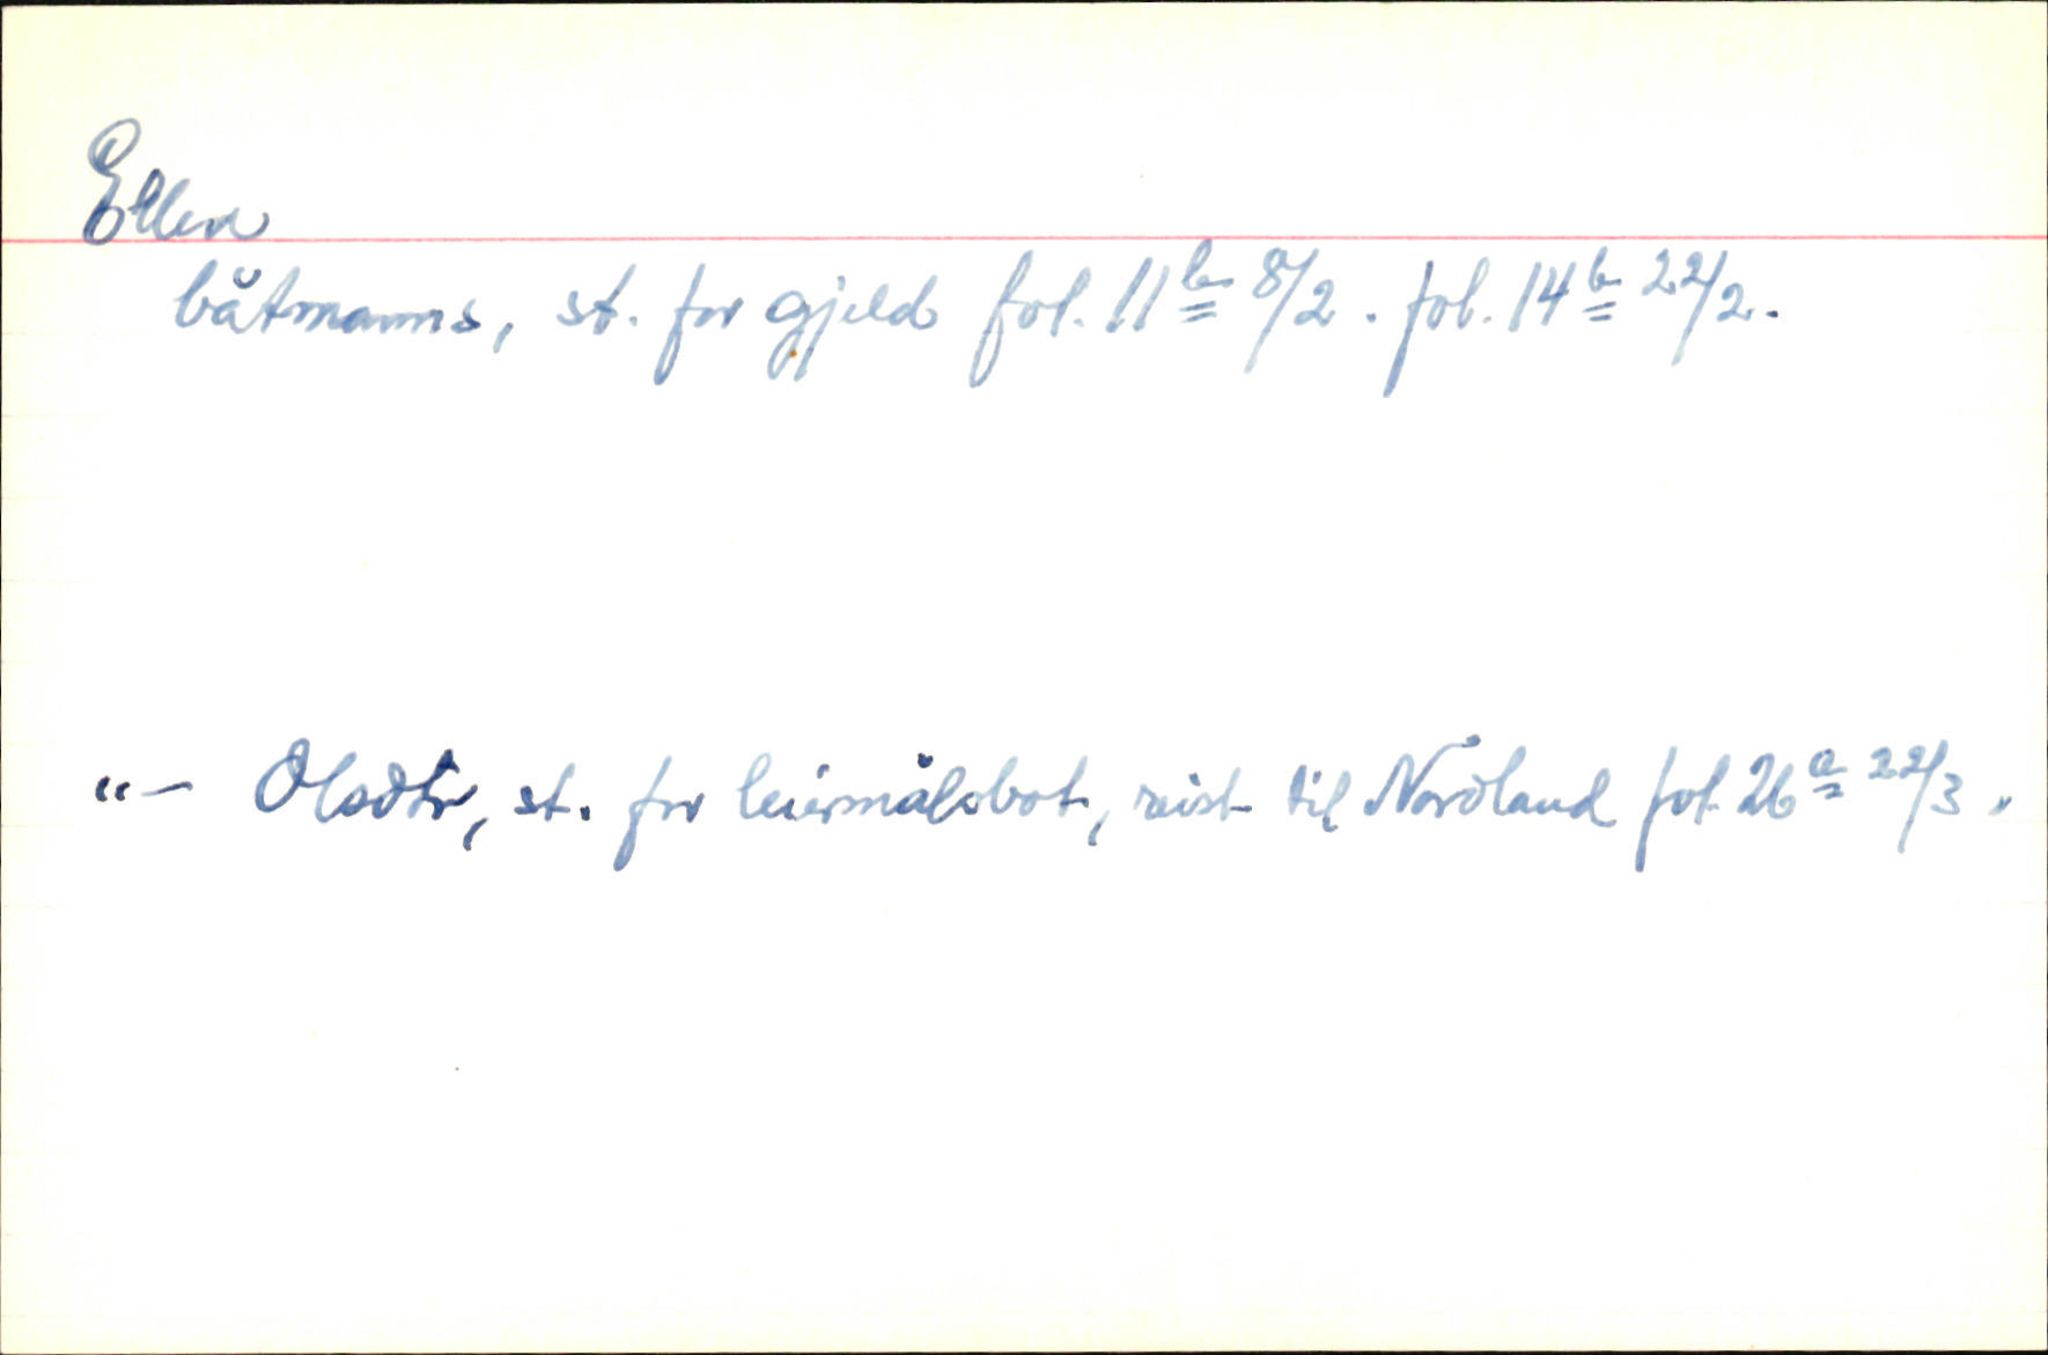 Ellen
båtmanns, st. for gjeld fol. 11b 8/2. fol. 14b 22/2.
"— Olsdtr, st. for leiermålsbot, reist til Nordland fol. 26a 22/3.